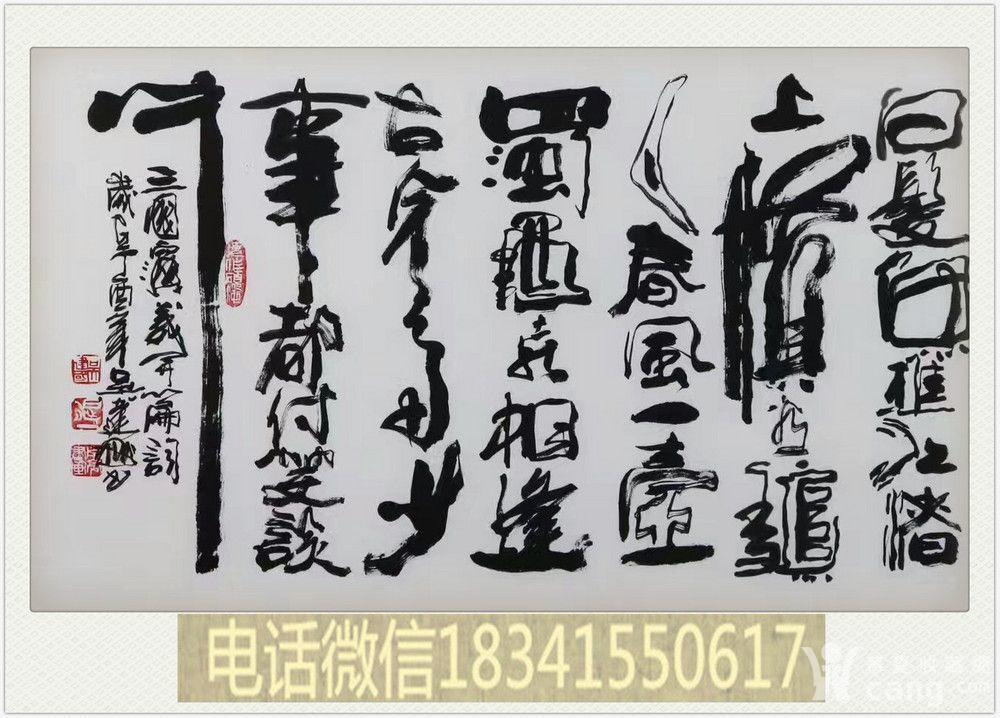 白髮漁樵江渚
上慣看秋
月春風一壺
濁酒喜相逢
古今多少
事都付笑談
中
三國演義开篇詞
歲
电话微信18341550617
cang.com